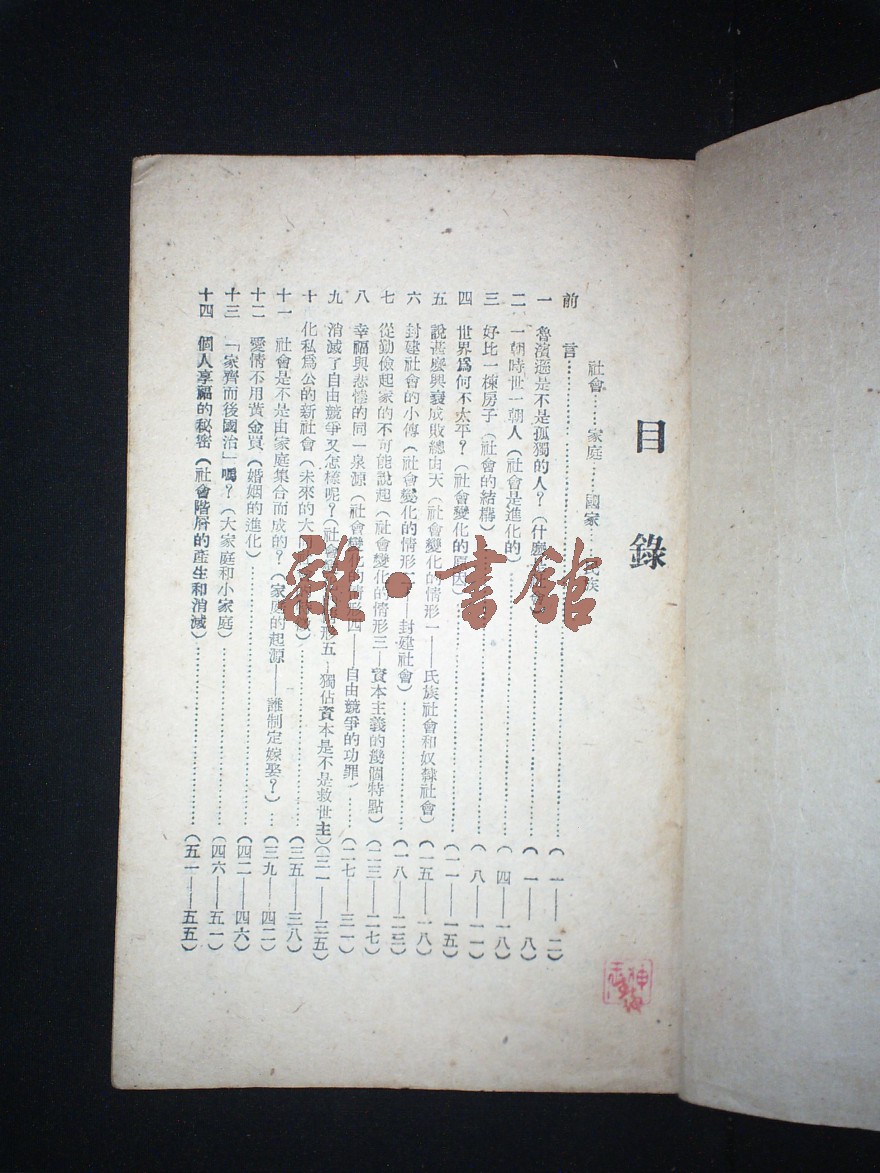 目錄
社會……家庭……國家……族
前 言……(一——二)
一 魯濱遜是不是孤獨的人?(什麼……(一——八)
二 一朝時世一朝人(社會是進化的)……(四——八)
三 好比一棟房子(社會的結構)……(八——一一)
四 世界爲何不太平?(社會變化的原因)……(一一——一五)
五 說甚麼興衰成敗總由天(社會變化的情形一——氏族社會和奴隸社會)(一五——一八)
六 封建社會的小傳(社會變化的情形——封建社會)……(一八——二三)
七 從勤儉起家的不可能說起(社會變化的情形三—資本主義的幾個特點)(二三——二七)
八 幸福與悲慘的同一泉源(社會變化的情形四——自由競爭的功罪)……(二七——三一)
九 消滅了自由競爭又怎樣呢?(社會形五—獨佔資本是不是救世主)(三一——三五)
十 化私爲公的新社會(未來的大同……(三五——三八)
十一 社會是不是由家庭集合而成的?(家庭的起源——誰制定嫁娶?)…(三九——四二)
十二 愛情不用黃金買(婚姻的進化)……(四二——四六)
十三 「家齊而後國治」嗎?(大家庭和小家庭)……(四六——五一)
十四 個人享福的秘密(社會階層的產生和消滅)……(五一——五五)
雜·書館